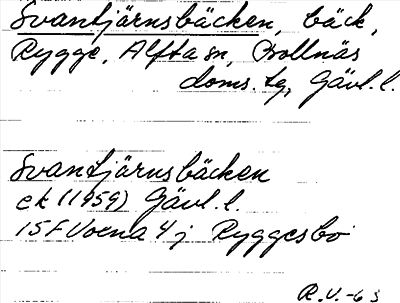 Svantjärnsbäcken, bäck,
Rygge, Alfta sn, Bollnäs
doms. tg, Gävl. l.
Svantjärnsbäcken
ek (1959) Gävl. l.
15F Voxna 4j Ryggesbo
R.V.-63